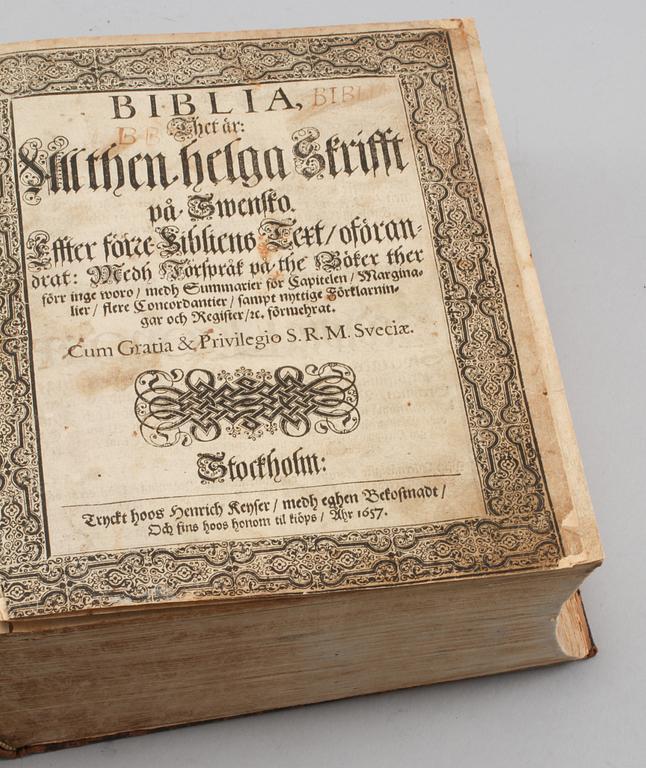 BIBLIA,
Thet är:
All then helga Skrifft
på Swensko.
Effter förre Bibliens Text/ oföran-
drat: Medh Förspråk på the Böker ther
förr inge woro/ medh Summarier för Capitelen/ Margina-
lier/ flere Concordantier/ sampt nyttige Förklarnin-
gar och Register/ꝛc. förmehrat.
Cum Gratia & Privilegio S. R. M. Sveciæ.
Stockholm:
Tryckt hoos Henrich Keyser/ medh eghen Bekostnadt/
Och fins hoos honom til kiöps/ Åhr 1657.